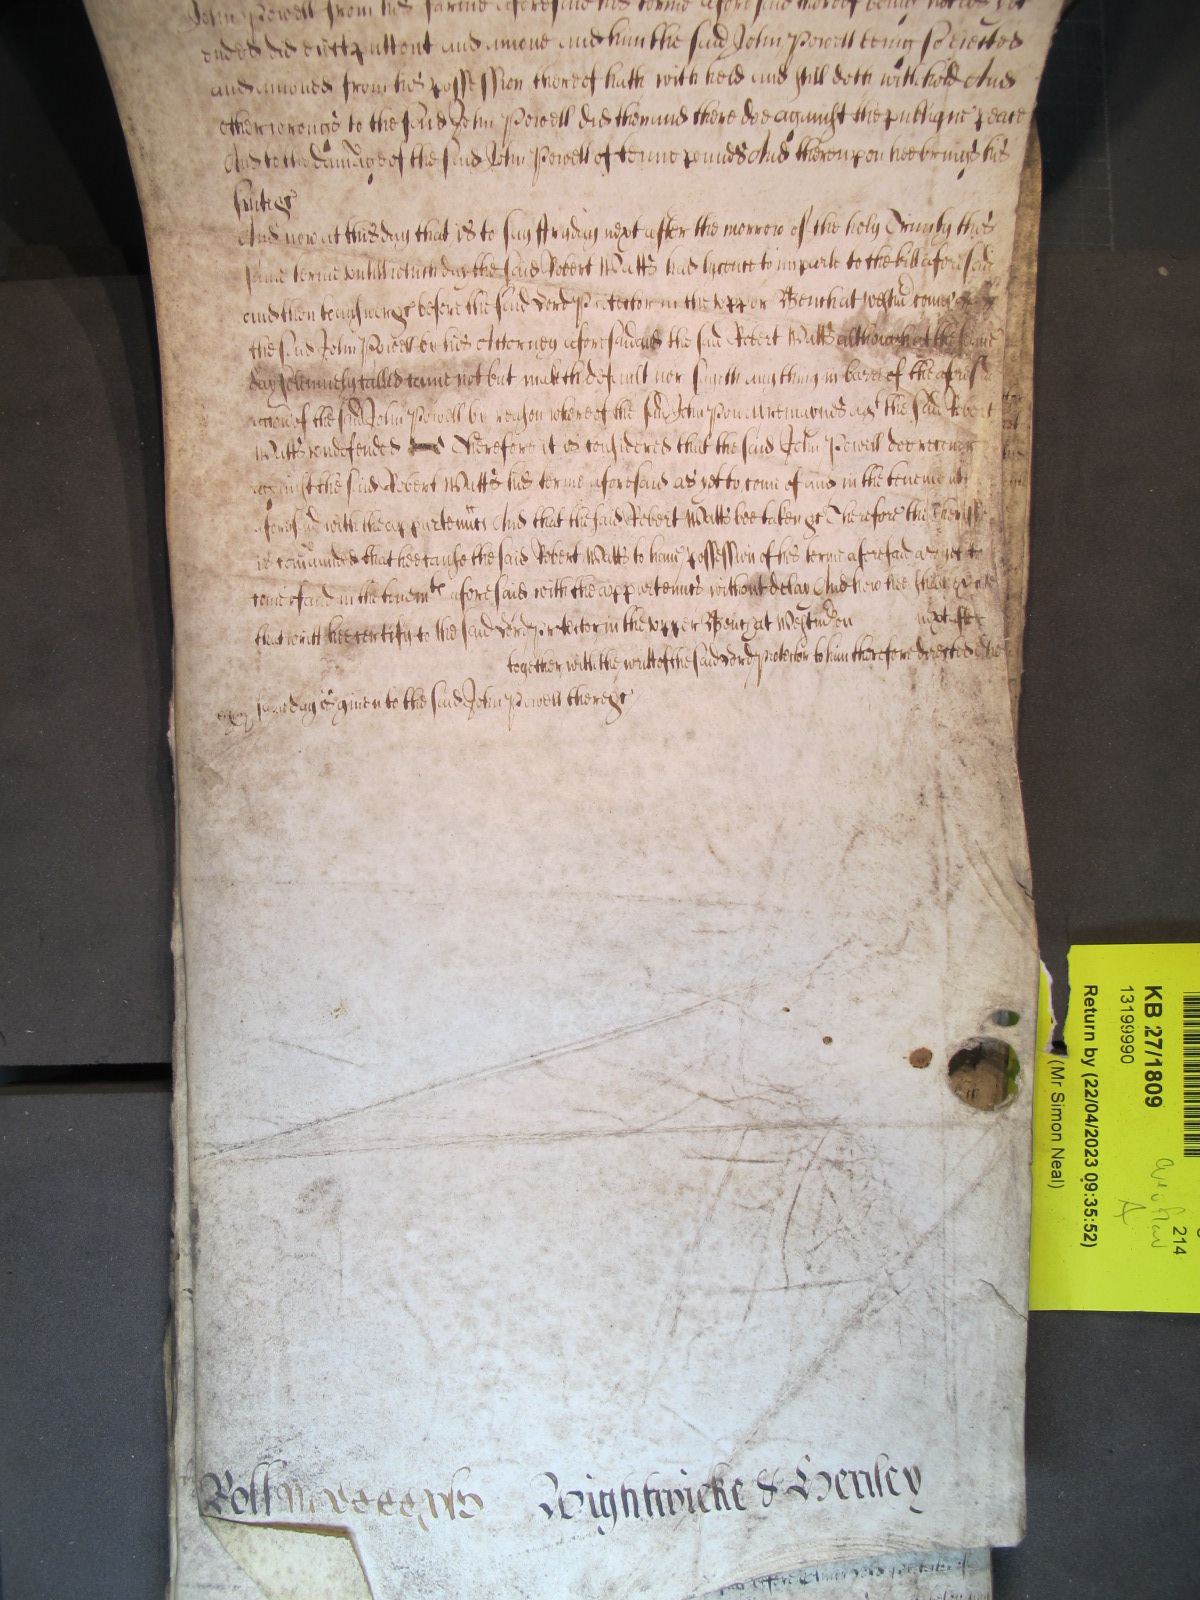 John Powell from his farme aforesaid his terme aforesaid thereof being not as yet
ended did eiect putt out and amove and him the said John Powell being so eiected
and amoved from his possession thereof hath with held and still doth with hold And
other wrongs to the said John Powell did then and there doe against the publique peace
And to the damage of the said John Powell of tenne pounds And thereupon hee brings his
suite &c
And now at this day that is to say ffryday next after the morrow of the holy Trinity this
same terme untill which day the said Robert Watts had lycence to imparle to the bill aforesaid
and then to answere &c before the said Lord Protector in the upper Bench at Westmr comes
the said John Powell by his Attorney aforesaid And the said Robert Watts although at the same
day solemnely called came not but maketh default nor sayeth any thing in barr of the aforesd
accon of the said John Powell by reason whereof the said John Powell remaynes agt the said Robert
Watts undefended Therefore it is considered that the said John Powell doe recover
against the said Robert Watts his terme aforesaid as yet to come of and in the tenements
aforesaid with the appurtenncs And that the said Robert Watts bee taken &c Therefore the Sheriffe
is commanded that hee cause the said Robert Watts to have possession of his terme aforesaid as yet to
come of and in the tenemts aforesaid with the appurtenncs without delay And how hee shall execute
that writt hee certify to the said Lord Protector in the upper Bench at Westmr on next after
together with the writt of the said Lord Protector to him therefore directed the
same day is given to the said John Powell there &c
Roll Wightwicke & Henley
KB 27/1809
13199990
Return by (22/04/2023 09:35:52)
(Mr Simon Neal)
214